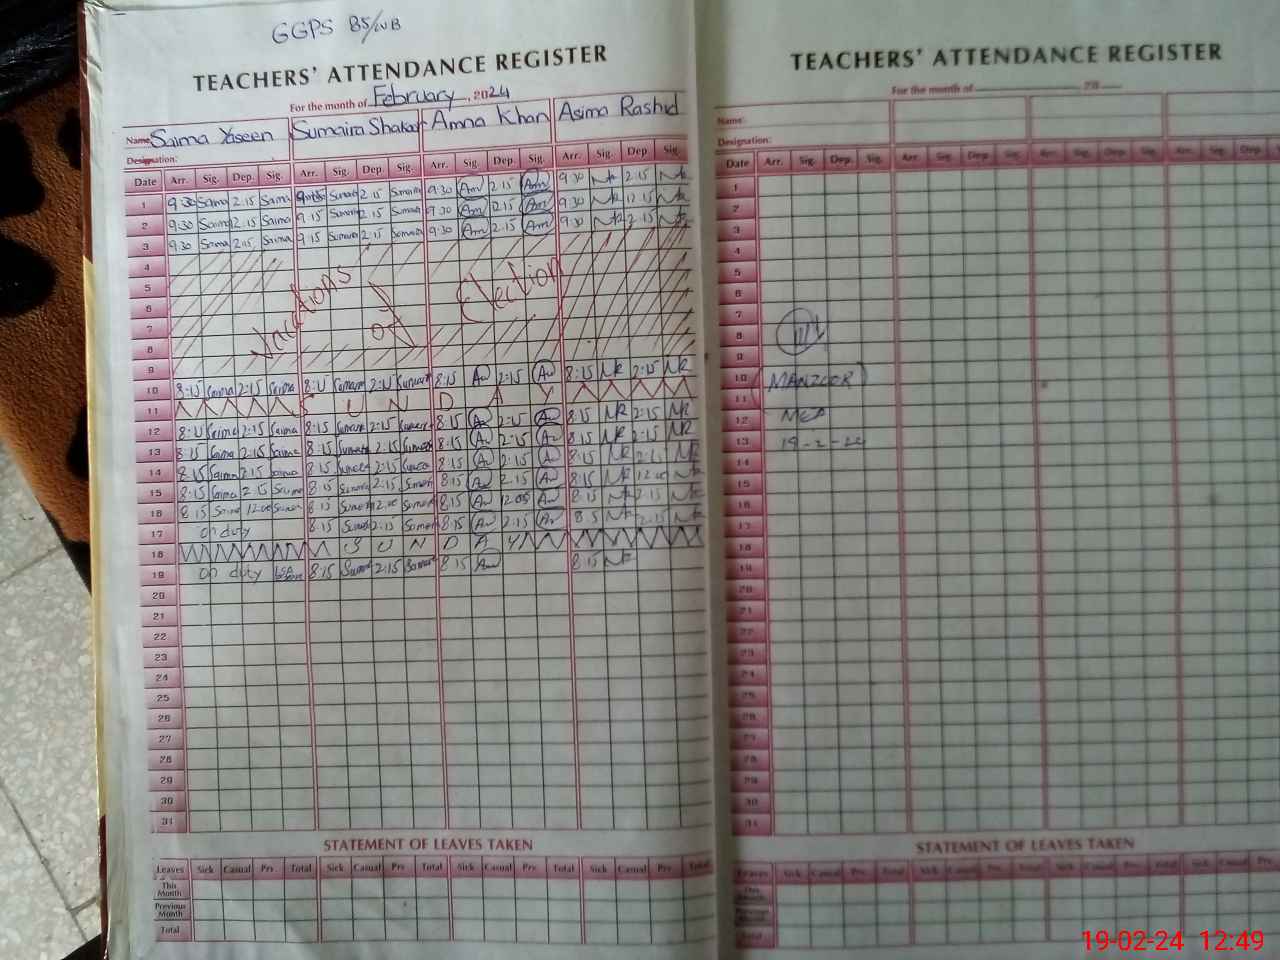 GGPS 85/WB
TEACHERS' ATTENDANCE REGISTER
For the month of February, 2024
Name: Saima Yaseen Sumaira Shakoor Amna Khan Asima Rashid
Designation:
Date Arr. Sig. Dep. Sig. Arr. Sig. Dep. Sig. Arr. Sig. Dep. Sig. Arr. Sig. Dep Sig.
1 9:30 Saima 2:15 Saima 9:15 Sumaira 2:15 Sumaira 9:30 Am 2:15 Am 9:30 2:15
2 9:30 Saima 2:15 Saima 9:15 Sumaira 2:15 Sumaira 9:30 Am 12:15 Am 9:30 12:15
3 9:30 Saima 2:15 Saima 9:15 Sumaira 2:15 Sumaira 9:30 Am 2:15 Am 9:30 2:15
4
5
6
7
8
9
Vacations of Election
10 8:15 Saima 2:15 Saima 8:15 Sumaira 2:15 Sumaira 8:15 2:15 8:15 2:15
11 SUNDAY
12 8:15 Saima 2:15 Saima 8:15 Sumaira 2:15 Sumaira 8:15 2:15 8:15 2:15
13 8:15 Saima 2:15 Saima 8:15 Sumaira 2:15 Sumaira 8:15 2:15 8:15 2:15
14 8:15 Saima 2:15 Saima 8:15 Sumaira 2:15 Sumaira 8:15 2:15 8:15 2:15
15 8:15 Saima 2:15 Saima 8:15 Sumaira 2:15 Sumaira 8:15 2:15 8:15 12:00
16 8:15 Saima 12:00 Saima 8:15 Sumaira 12:00 Sumaira 8:15 12:05 8:15 2:15
17 on duty 8:15 Sumaira 2:15 Sumaira 8:15 2:15 8:15 2:15
18 SUNDAY
19 on duty 8:15 2:15 8:15 8:15
20
21
22
23
24
25
26
27
28
29
30
31
STATEMENT OF LEAVES TAKEN
Leaves Sick Casual Prv. Total Sick Casual Prv. Total Sick Casual Prv. Total Sick Casual Prv. Total
This Month
Previous Month
Total
TEACHERS' ATTENDANCE REGISTER
For the month of , 20
Name:
Designation:
Date Arr. Sig. Dep. Sig. Arr. Sig. Dep. Sig. Arr. Sig. Dep. Sig. Arr. Sig. Dep.
1
2
3
4
5
6
7
8
9
10 (MANZOOR)
11
12 MEA
13 19-2-24
14
15
16
17
18
19
20
21
22
23
24
25
26
27
28
29
30
31
STATEMENT OF LEAVES TAKEN
Leaves Sick Casual Prv. Total Sick Casual Prv. Total Sick Casual Prv. Total Sick Casual
This Month
Previous Month
Total
19-02-24 12:49